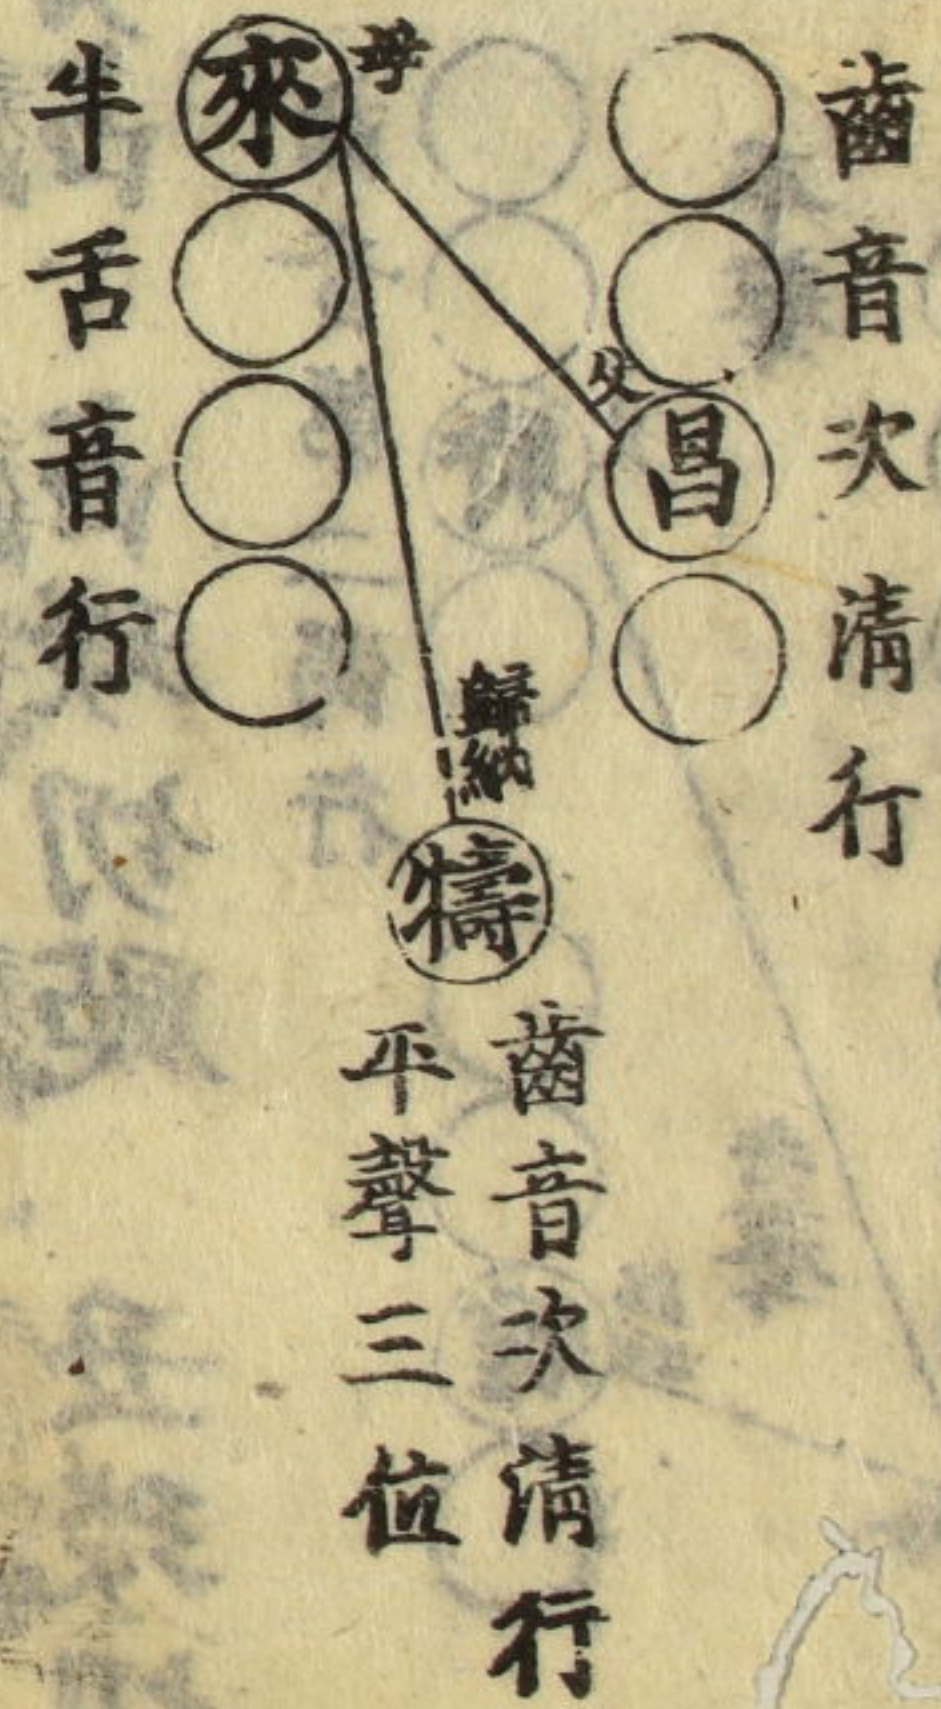 齒音次清行
昌
父
母
來
半舌音行
歸納
𤛾
齒音次清行
平聲三位